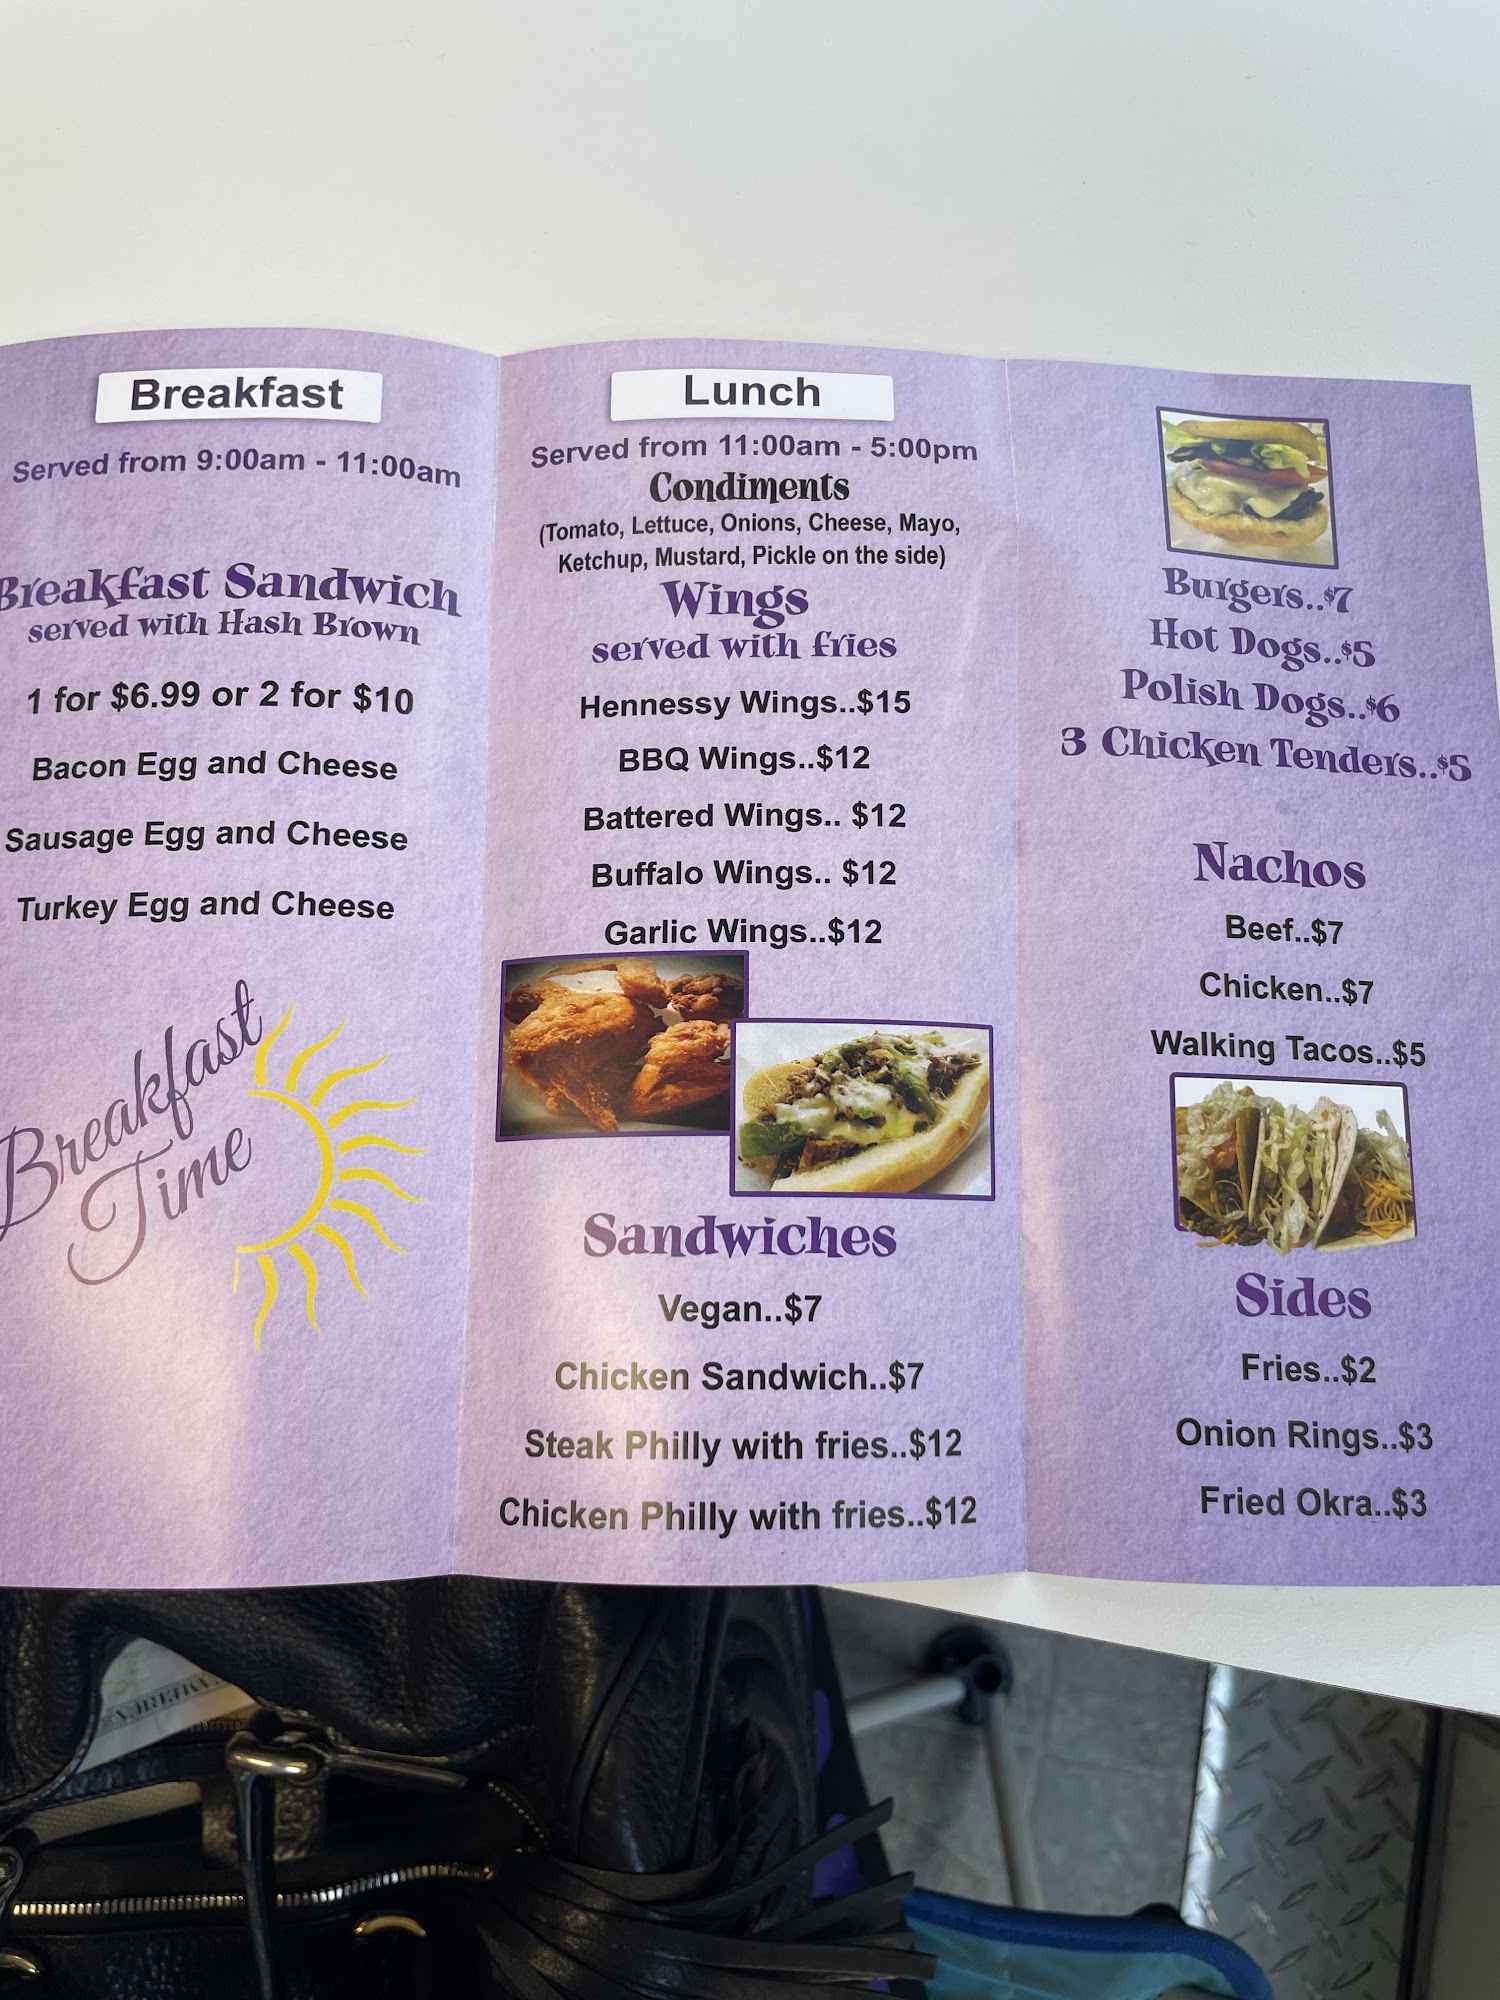 Breakfast
Served from 9:00am - 11:00am
Breakfast Sandwich
served with Hash Brown
1 for $6.99 or 2 for $10
Bacon Egg and Cheese
Sausage Egg and Cheese
Turkey Egg and Cheese
Breakfast
Time
Lunch
Served from 11:00am - 5:00pm
Condiments
(Tomato, Lettuce, Onions, Cheese, Mayo,
Ketchup, Mustard, Pickle on the side)
Wings
served with fries
Hennessy Wings..$15
BBQ Wings..$12
Battered Wings.. $12
Buffalo Wings.. $12
Garlic Wings..$12
Sandwiches
Vegan..$7
Chicken Sandwich..$7
Steak Philly with fries..$12
Chicken Philly with fries..$12
Burgers..$7
Hot Dogs..$5
Polish Dogs..$6
3 Chicken Tenders..$5
Nachos
Beef..$7
Chicken..$7
Walking Tacos..$5
Sides
Fries..$2
Onion Rings..$3
Fried Okra..$3